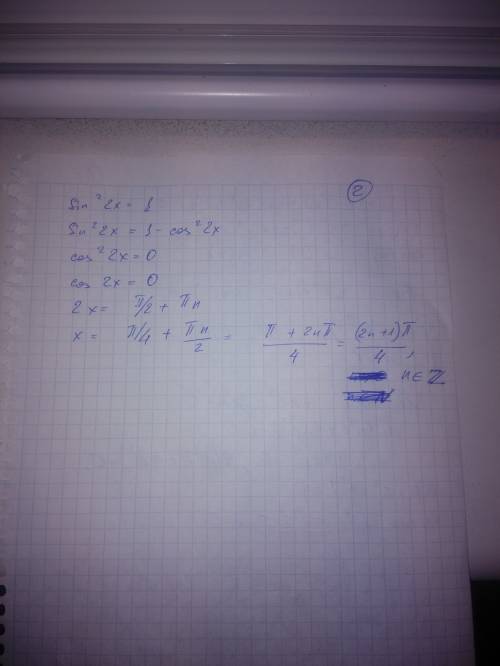 ②
sin²2x = 1
sin²2x = 1 - cos²2x
cos²2x = 0
cos 2x = 0
2x = π/2 + πn
x = π/4 + πn/2 = (π + 2nπ)/4 = (2n+1)π/4,
n∈ℤ